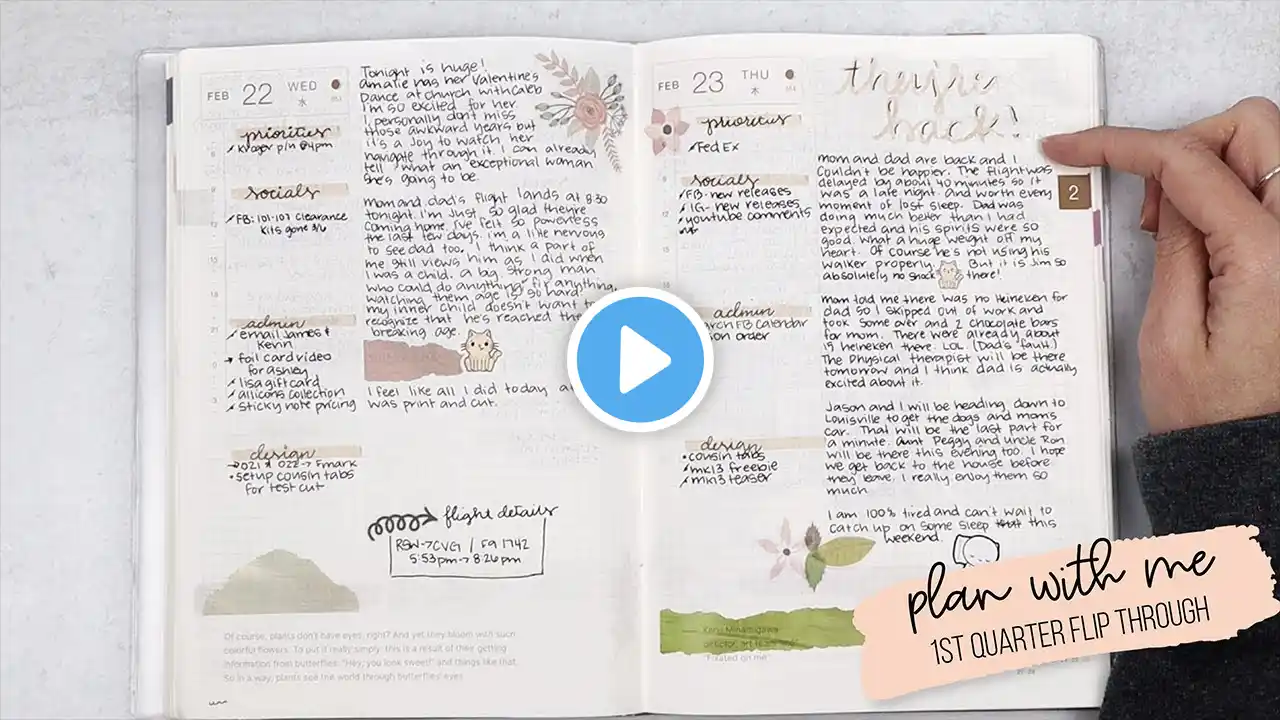 FEB 22 WED
水
priorities
Kroger p/u @4pm
socials
FB: 101-107 clearance
kits gone 3/6
admin
email James &
Kevin
foil card video
for ashley
lisa gift card
allicons collection
sticky note pricing
design
021 & 022 → Fmark
setup cousin tabs
for test cut
Tonight is huge!
Amalie has her valentines
Dance at church with Caleb
I'm so excited for her
I personally don't miss
those awkward years but
it's a Joy to watch her
navigate through it. I can already
tell what an exceptional woman
she's going to be.
Mom and dad's flight lands at 8:30
tonight. I'm just so glad they're
coming home. I've felt so powerless
the last few days. I'm a little nervous
to see dad too. I think a part of
me still views him as I did when
I was a child. a big strong man
who could do anything, fix anything.
watching them age is so hard
my inner child doesn't want to
recognize that he's reached the
breaking age.
I feel like all I did today
was print and cut.
flight details
RSW→CVG / F9 1742
5:53pm → 8:26pm
Of course, plants don't have eyes, right? And yet they bloom with such
colorful flowers. To put it really simply, this is a result of their getting
information from butterflies: "Hey, you look sweet!" and things like that.
So in a way, plants see the world through butterflies' eyes.
FEB 23 THU
木
priorities
Fed Ex
socials
FB-new releases
IG-new releases
youtube comments
admin
march FB Calendar
on order
design
cousin tabs
mk13 freebie
mk13 teaser
they're
back!
mom and dad are back and I
couldn't be happier. The flight was
delayed by about 40 minutes so it
was a late night. And worth every
moment of lost sleep. Dad was
doing much better than I had
expected and his spirits were so
good. What a huge weight off my
heart. Of course he's not using his
walker properly. But it is Jim so
absolutely no shock there!
mom told me there was no Heineken for
dad so I skipped out of work and
took some over and 2 chocolate bars
for mom. There were already about
18 heineken there LOL (Dad's fault.)
The Physical therapist will be there
tomorrow and I think dad is actually
excited about it.
Jason and I will be heading down to
Louisville to get the dogs and mom's
car. That will be the last part for
a minute. Aunt Peggy and uncle Ron
will be there this evening too. I hope
we get back to the house before
they leave. I really enjoy them so
much.
I am 100% tired and can't wait to
catch up on some sleep this
weekend.
2
director, art
"Fixated on me"
plan with me
1ST QUARTER FLIP THROUGH